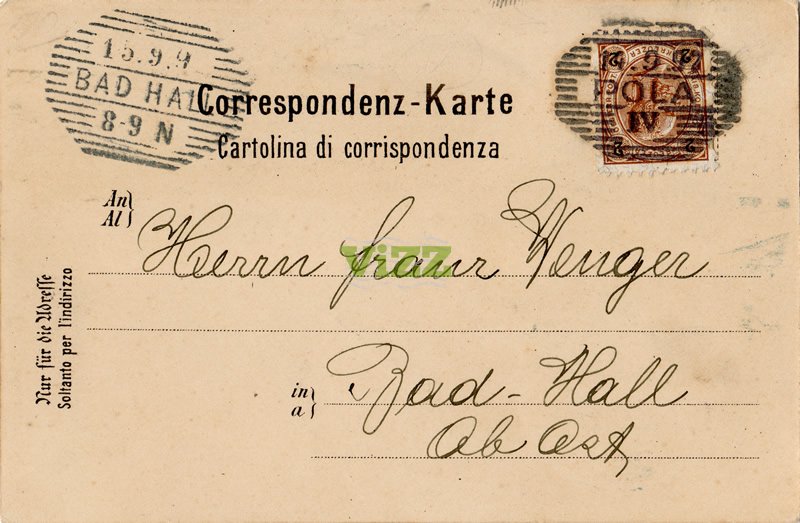 15.9.9
BAD HAL
8-9 N
Correspondenz-Karte
Cartolina di corrispondenza
KREUZER
2 2
POLA
IV
2 2
An
Al
Herrn Franz Wenger
vizz
in
a
Bad-Hall
Ob Öst
Nur für die Adresse
Soltanto per l'indirizzo